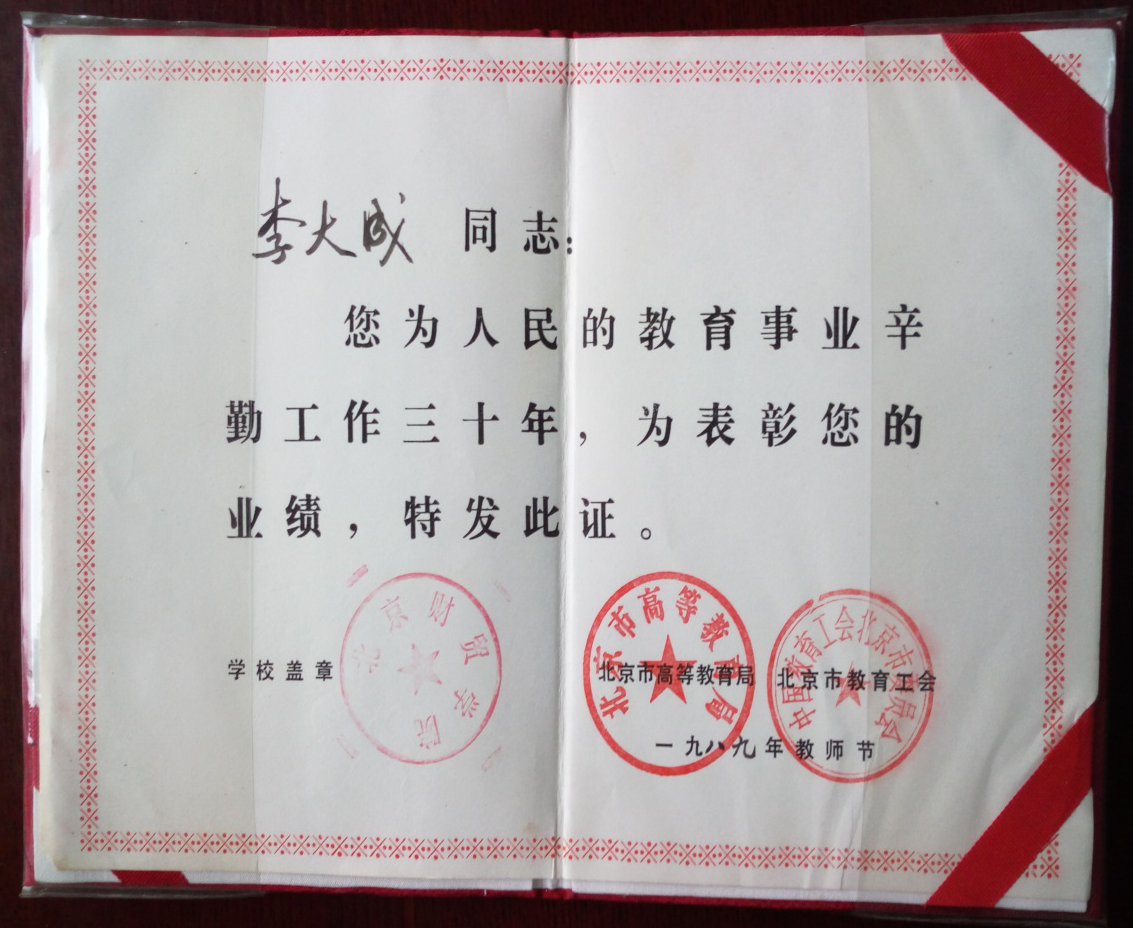 李大成 同志：
您为人民的教育事业辛
勤工作三十年，为表彰您的
业绩，特发此证。
学校盖章
北京财贸学院
北京市高等教育局
北京市高等教育局
北京市教育工会
中国教育工会北京市委员会
一九八九年教师节